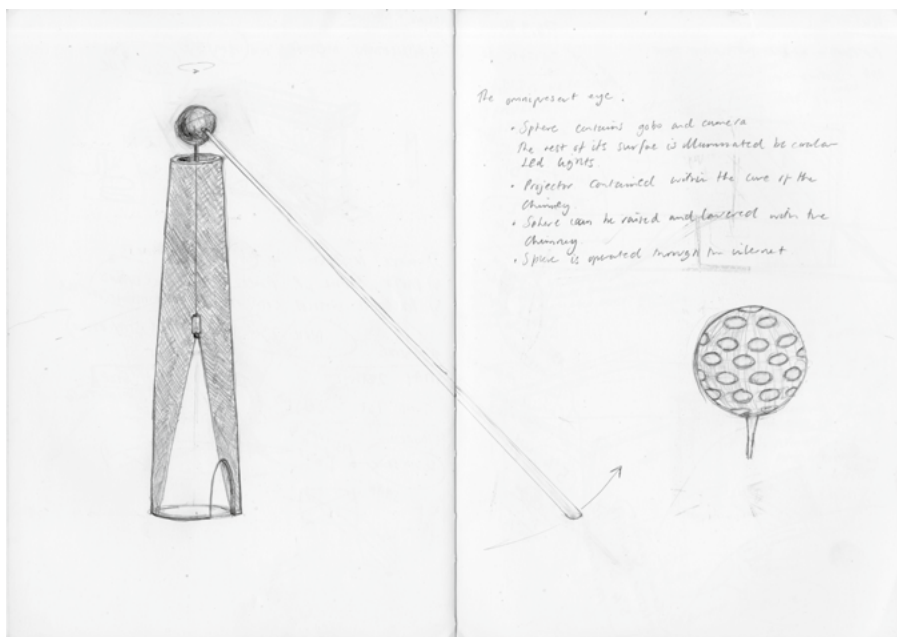 The omnipresent eye.
• Sphere contains gobo and camera
The rest of its surface is illuminated be circular
LED lights.
• Projector contained within the core of the
Chimney
• Sphere can be raised and lowered within the
Chimney
• Sphere is operated through the internet